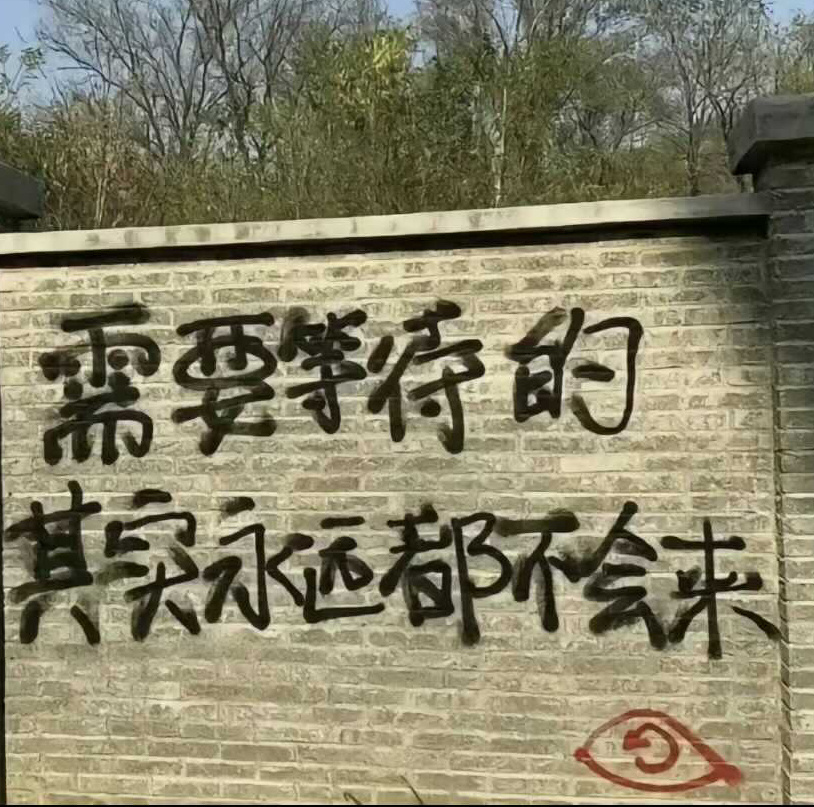 需要等待的
其实永远都不会来